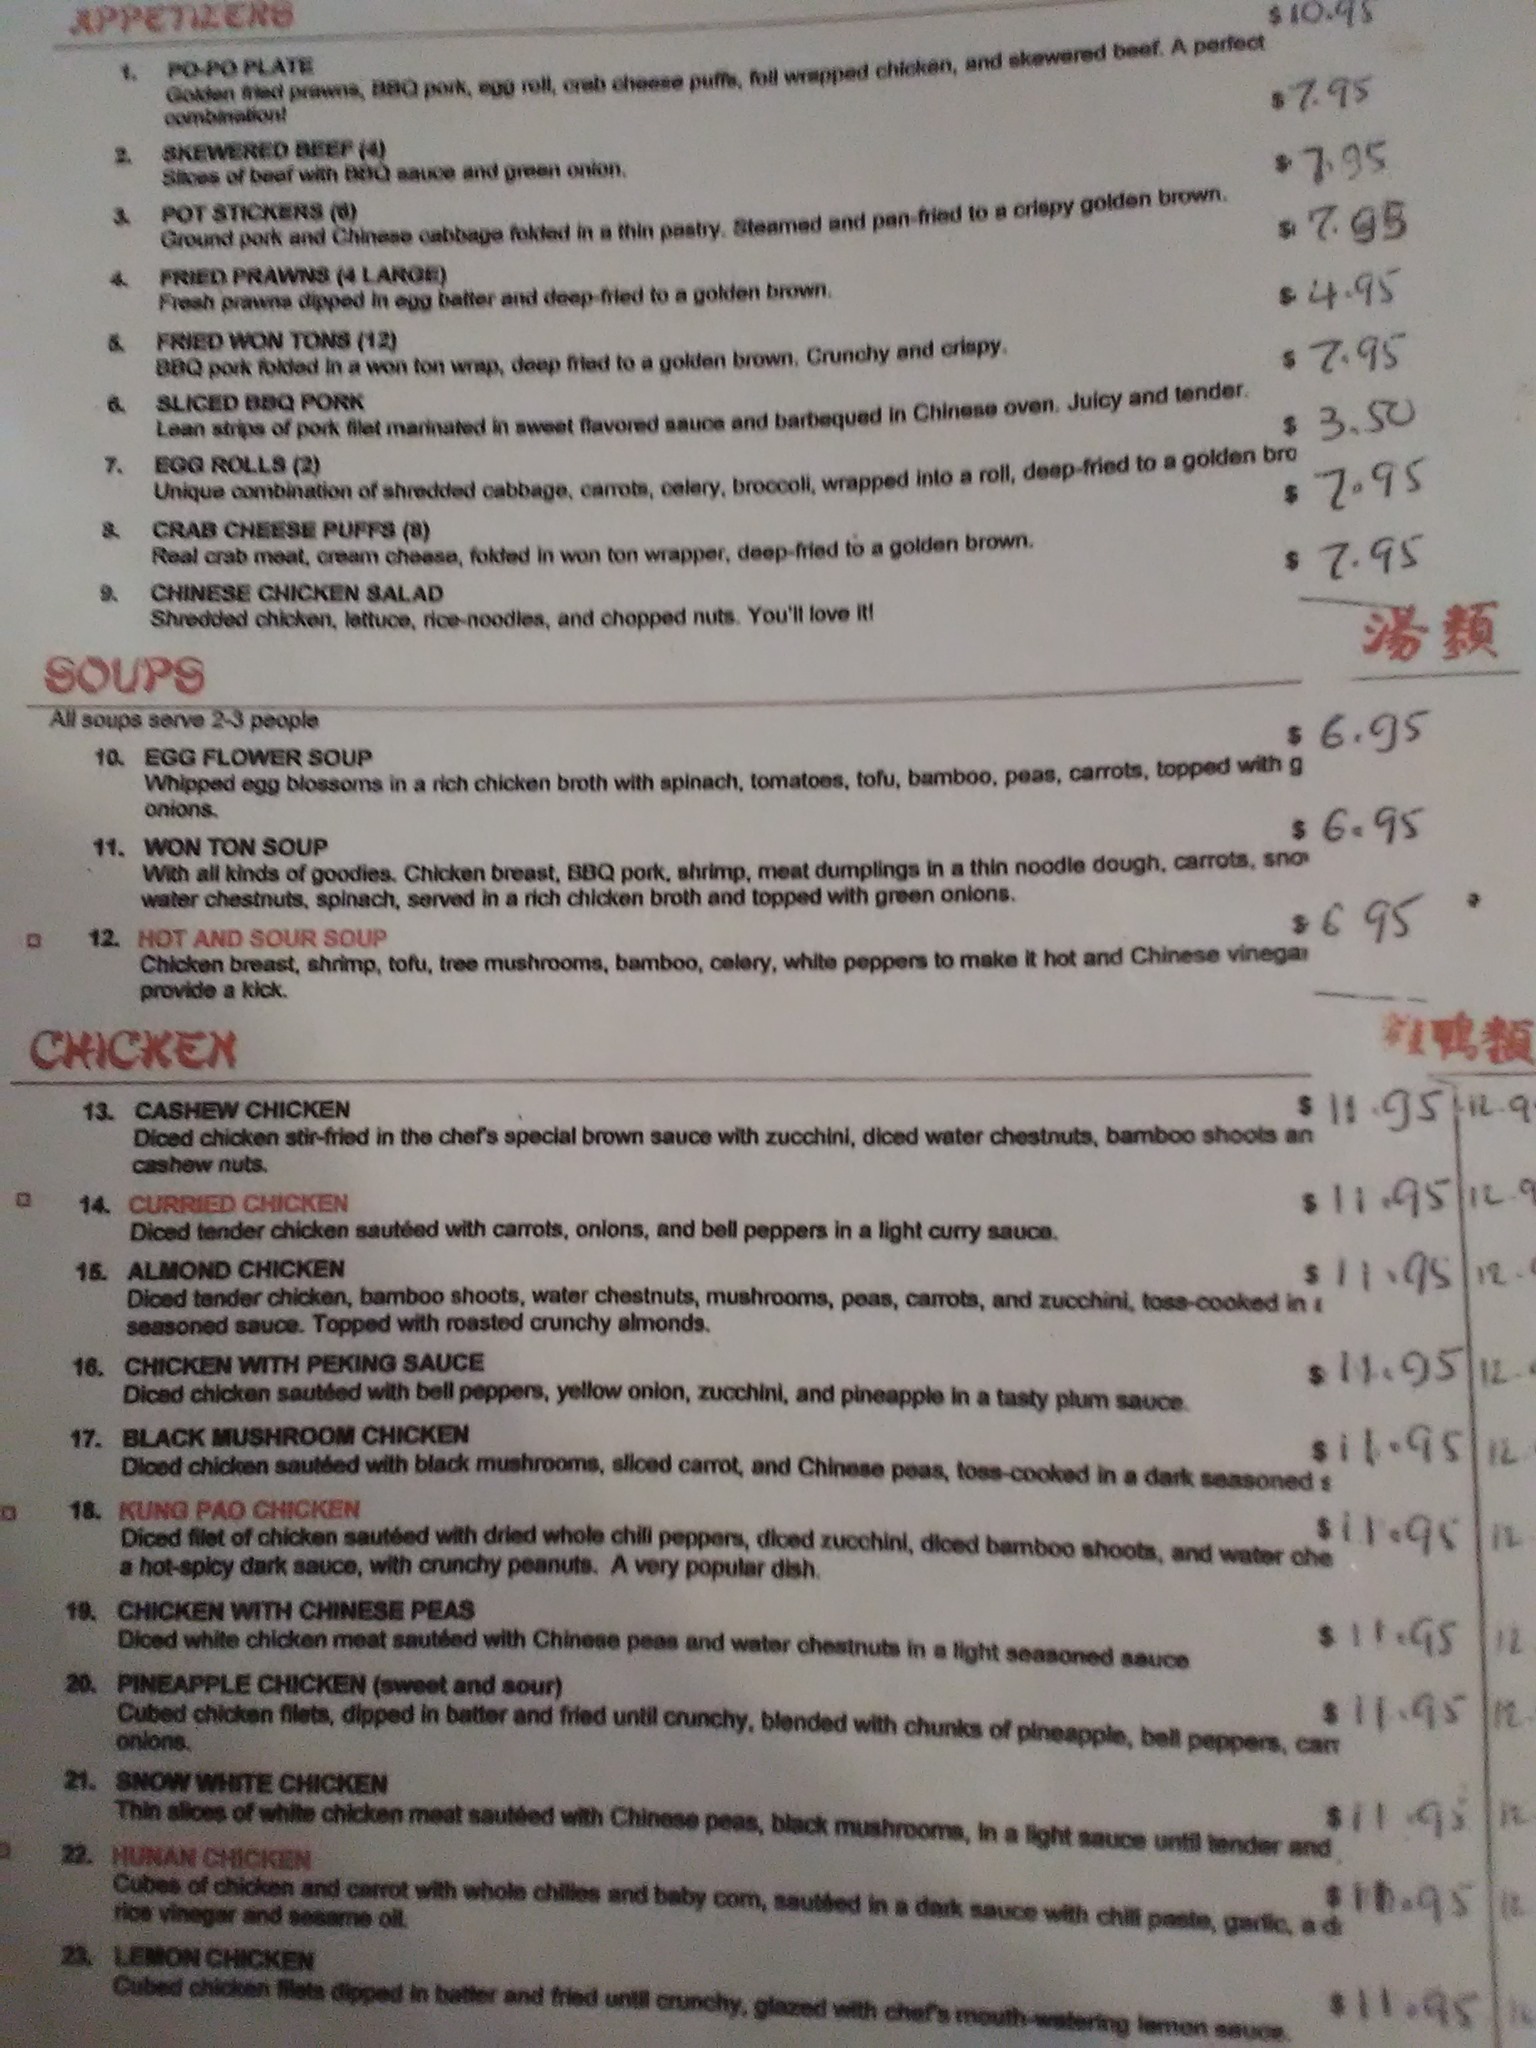 APPETIZERS
$10.95
1. PO-PO PLATE
Golden fried prawns, BBQ pork, egg roll, crab cheese puffs, foil wrapped chicken, and skewered beef. A perfect
combination!
$7.95
2. SKEWERED BEEF (4)
Slices of beef with BBQ sauce and green onion.
$7.95
3. POT STICKERS (6)
Ground pork and Chinese cabbage folded in a thin pastry. Steamed and pan-fried to a crispy golden brown.
$7.95
4. FRIED PRAWNS (4 LARGE)
Fresh prawns dipped in egg batter and deep-fried to a golden brown.
$4.95
5. FRIED WON TONS (12)
BBQ pork folded in a won ton wrap, deep fried to a golden brown. Crunchy and crispy.
$7.95
6. SLICED BBQ PORK
Lean strips of pork filet marinated in sweet flavored sauce and barbequed in Chinese oven. Juicy and tender.
$3.50
7. EGG ROLLS (2)
Unique combination of shredded cabbage, carrots, celery, broccoli, wrapped into a roll, deep-fried to a golden bro
$7.95
8. CRAB CHEESE PUFFS (8)
Real crab meat, cream cheese, folded in won ton wrapper, deep-fried to a golden brown.
$7.95
9. CHINESE CHICKEN SALAD
Shredded chicken, lettuce, rice-noodles, and chopped nuts. You'll love it!
SOUPS 湯類
All soups serve 2-3 people
10. EGG FLOWER SOUP $6.95
Whipped egg blossoms in a rich chicken broth with spinach, tomatoes, tofu, bamboo, peas, carrots, topped with g
onions.
11. WON TON SOUP $6.95
With all kinds of goodies. Chicken breast, BBQ pork, shrimp, meat dumplings in a thin noodle dough, carrots, snow
water chestnuts, spinach, served in a rich chicken broth and topped with green onions.
12. HOT AND SOUR SOUP $6 95
Chicken breast, shrimp, tofu, tree mushrooms, bamboo, celery, white peppers to make it hot and Chinese vinegar
provide a kick.
CHICKEN 鴨類
13. CASHEW CHICKEN $11.95 12.9
Diced chicken stir-fried in the chef's special brown sauce with zucchini, diced water chestnuts, bamboo shoots an
cashew nuts.
14. CURRIED CHICKEN $11.95 12.9
Diced tender chicken sautéed with carrots, onions, and bell peppers in a light curry sauce.
15. ALMOND CHICKEN $11.95 12.9
Diced tender chicken, bamboo shoots, water chestnuts, mushrooms, peas, carrots, and zucchini, toss-cooked in a
seasoned sauce. Topped with roasted crunchy almonds.
16. CHICKEN WITH PEKING SAUCE $11.95 12.
Diced chicken sautéed with bell peppers, yellow onion, zucchini, and pineapple in a tasty plum sauce.
17. BLACK MUSHROOM CHICKEN $11.95 12
Diced chicken sautéed with black mushrooms, sliced carrot, and Chinese peas, toss-cooked in a dark seasoned s
18. KUNG PAO CHICKEN $11.95 12
Diced filet of chicken sautéed with dried whole chili peppers, diced zucchini, diced bamboo shoots, and water che
a hot-spicy dark sauce, with crunchy peanuts. A very popular dish.
19. CHICKEN WITH CHINESE PEAS $11.95 12
Diced white chicken meat sautéed with Chinese peas and water chestnuts in a light seasoned sauce
20. PINEAPPLE CHICKEN (sweet and sour) $11.95 12.
Cubed chicken filets, dipped in batter and fried until crunchy, blended with chunks of pineapple, bell peppers, carr
onions.
21. SNOW WHITE CHICKEN $11.95 12
Thin slices of white chicken meat sautéed with Chinese peas, black mushrooms, in a light sauce until tender and
22. HUNAN CHICKEN $11.95 12
Cubes of chicken and carrot with whole chilies and baby corn, sautéed in a dark sauce with chili paste, garlic, a d
rice vinegar and sesame oil.
23. LEMON CHICKEN $11.95
Cubed chicken filets dipped in batter and fried until crunchy, glazed with chef's mouth-watering lemon sauce.